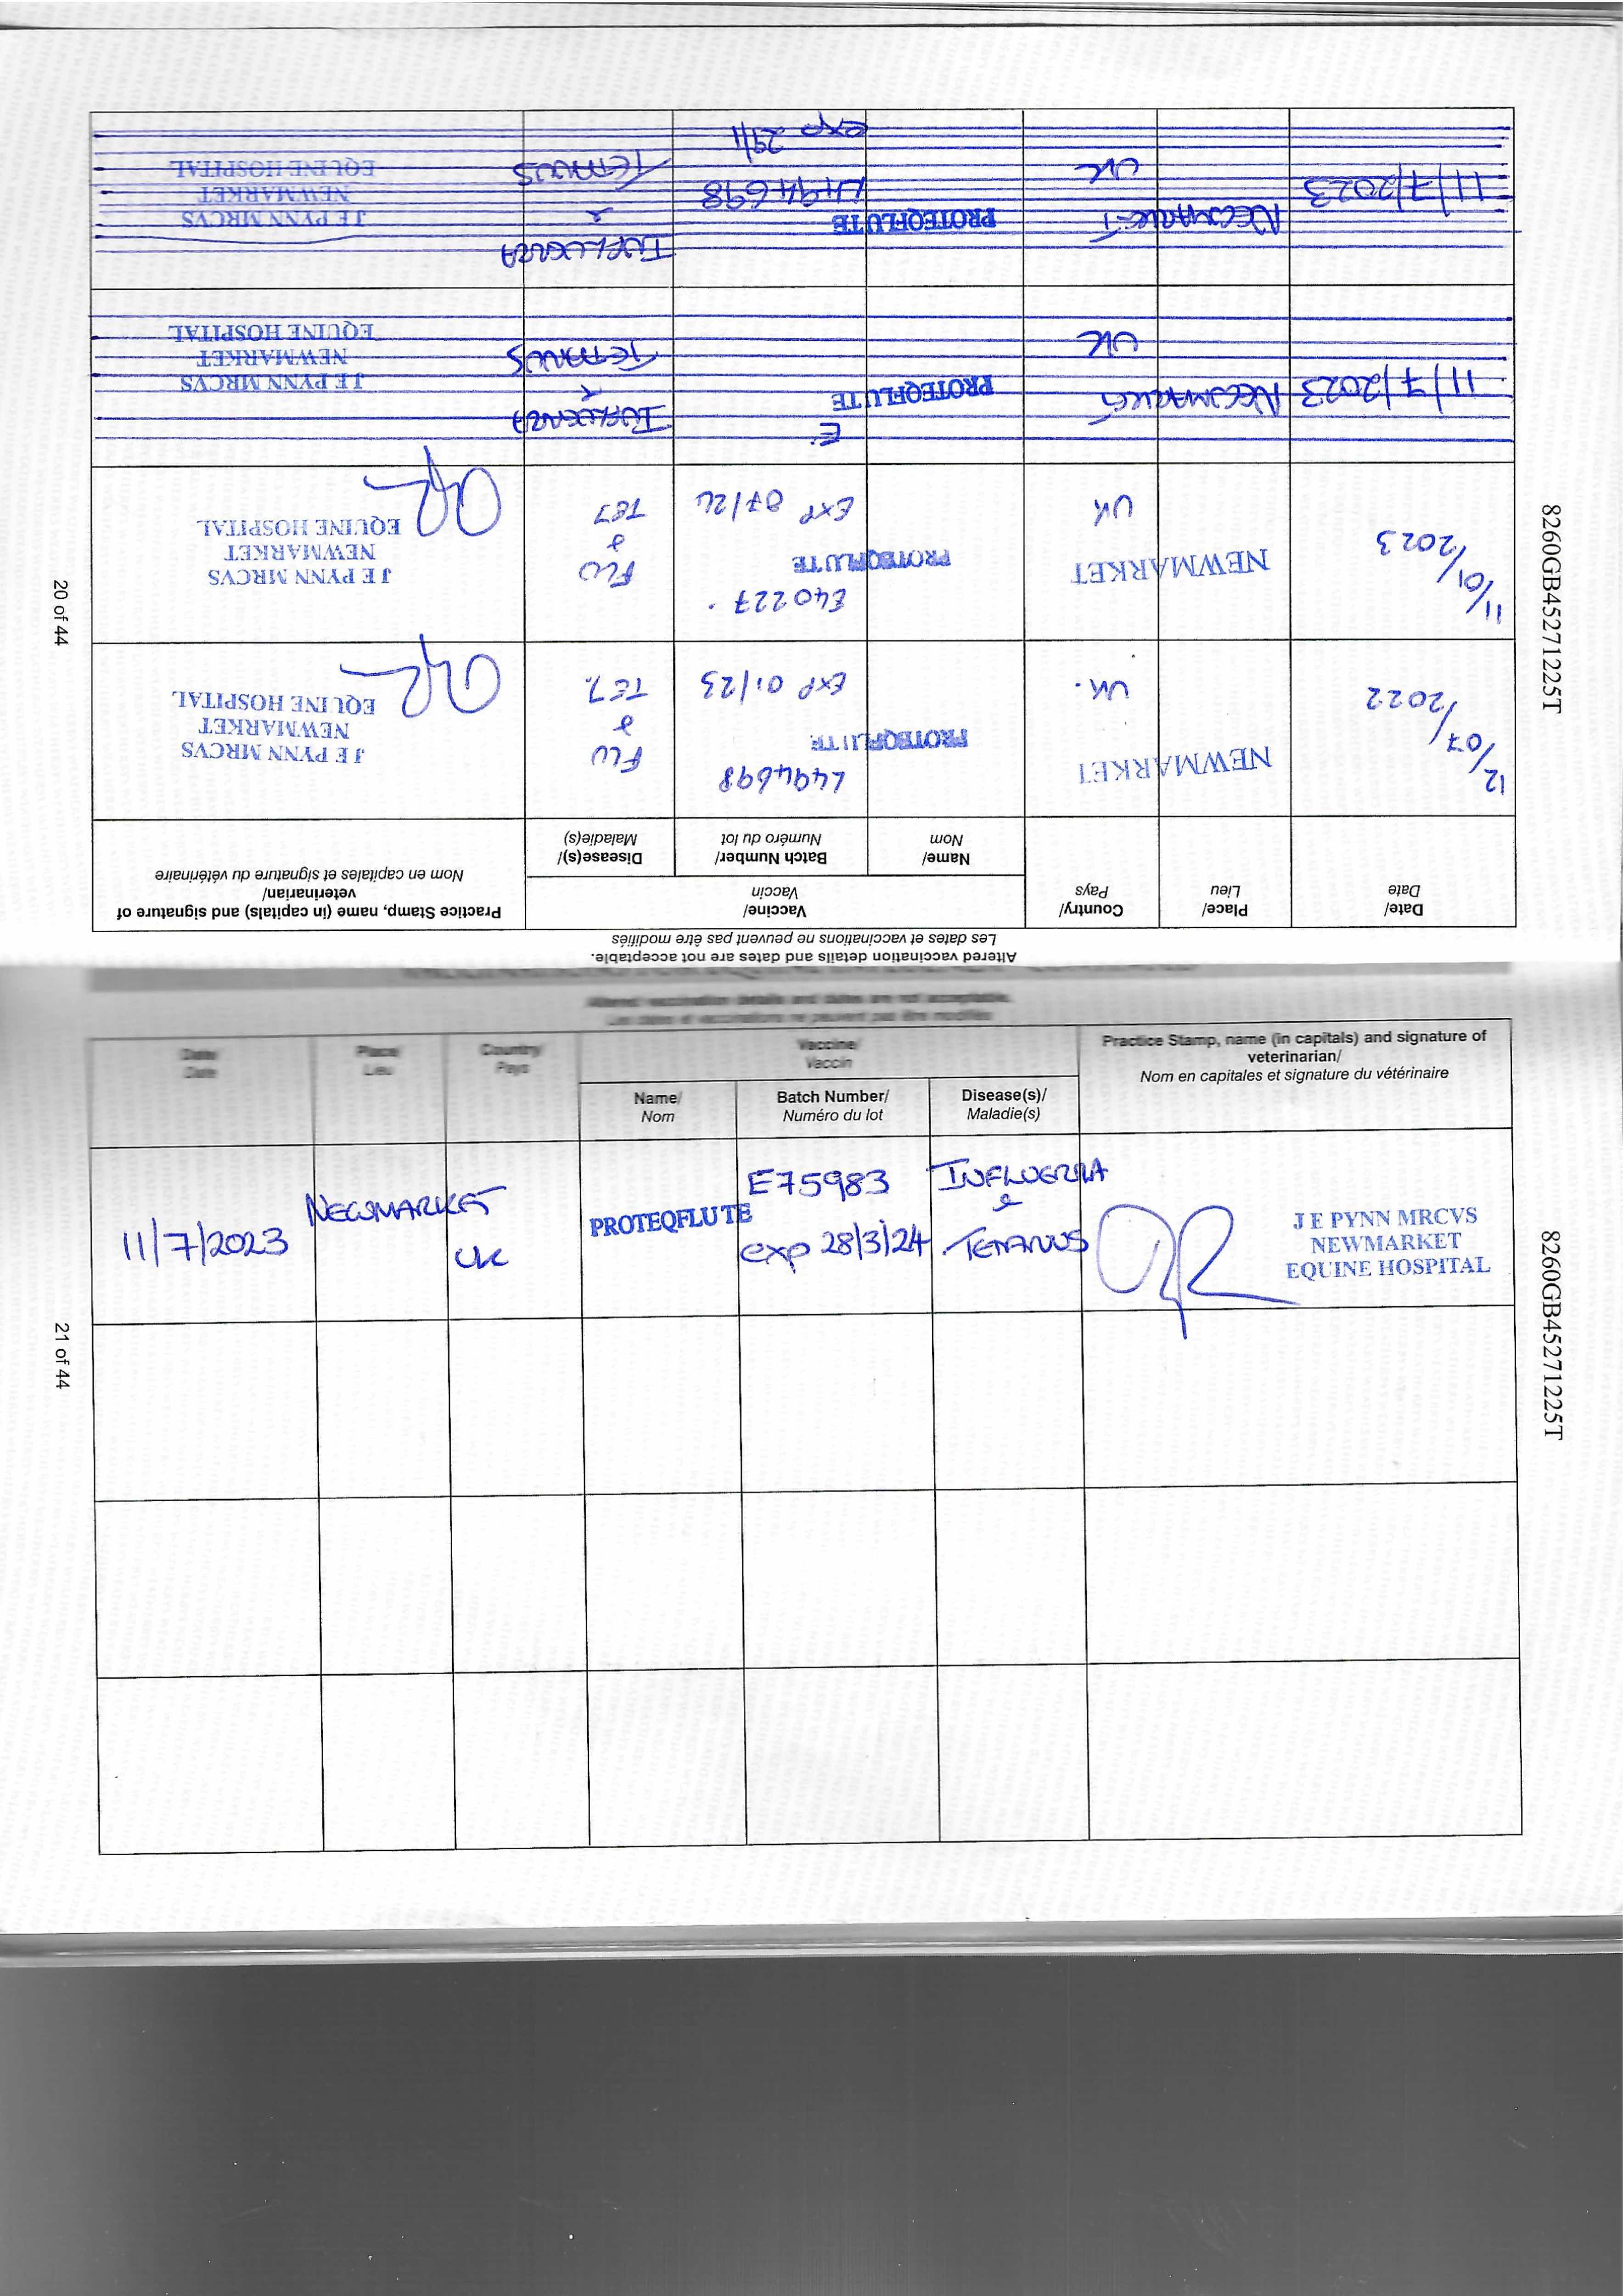 Altered vaccination details and dates are not acceptable.
Les dates et vaccinations ne peuvent pas être modifiés
Date/
Date
Place/
Lieu
Country/
Pays
Vaccine/
Vaccin
Practice Stamp, name (in capitals) and signature of
veterinarian/
Nom en capitales et signature du vétérinaire
Name/
Nom
Batch Number/
Numéro du lot
Disease(s)/
Maladie(s)
12/07/2022
NEWMARKET
UK.
PROTEQFLU TE
L494698
EXP 01/23
FLU
&
TET.
J E PYNN MRCVS
NEWMARKET
EQUINE HOSPITAL
11/01/2023
NEWMARKET
UK
PROTEQFLU TE
E40227.
FLU
&
TET
J E PYNN MRCVS
NEWMARKET
EQUINE HOSPITAL
11/7/2023
NEWMARKET
UK
E
PROTEQFLU TE
INFLUENZA
&
TETANUS
J E PYNN MRCVS
NEWMARKET
EQUINE HOSPITAL
11/7/2023
NEWMARKET
UK
PROTEQFLU TE
L494698
exp 29/1
INFLUENZA
&
TETANUS
J E PYNN MRCVS
NEWMARKET
EQUINE HOSPITAL
20 of 44
8260GB45271225T
Altered vaccination details and dates are not acceptable.
Les dates et vaccinations ne peuvent pas être modifiés
Date/
Date
Place/
Lieu
Country/
Pays
Vaccine/
Vaccin
Practice Stamp, name (in capitals) and signature of
veterinarian/
Nom en capitales et signature du vétérinaire
Name/
Nom
Batch Number/
Numéro du lot
Disease(s)/
Maladie(s)
11/7/2023
NEWMARKET
UK
PROTEQFLU TE
E75983
exp 28/3/24
INFLUENZA
&
TETANUS
J E PYNN MRCVS
NEWMARKET
EQUINE HOSPITAL
21 of 44
8260GB45271225T